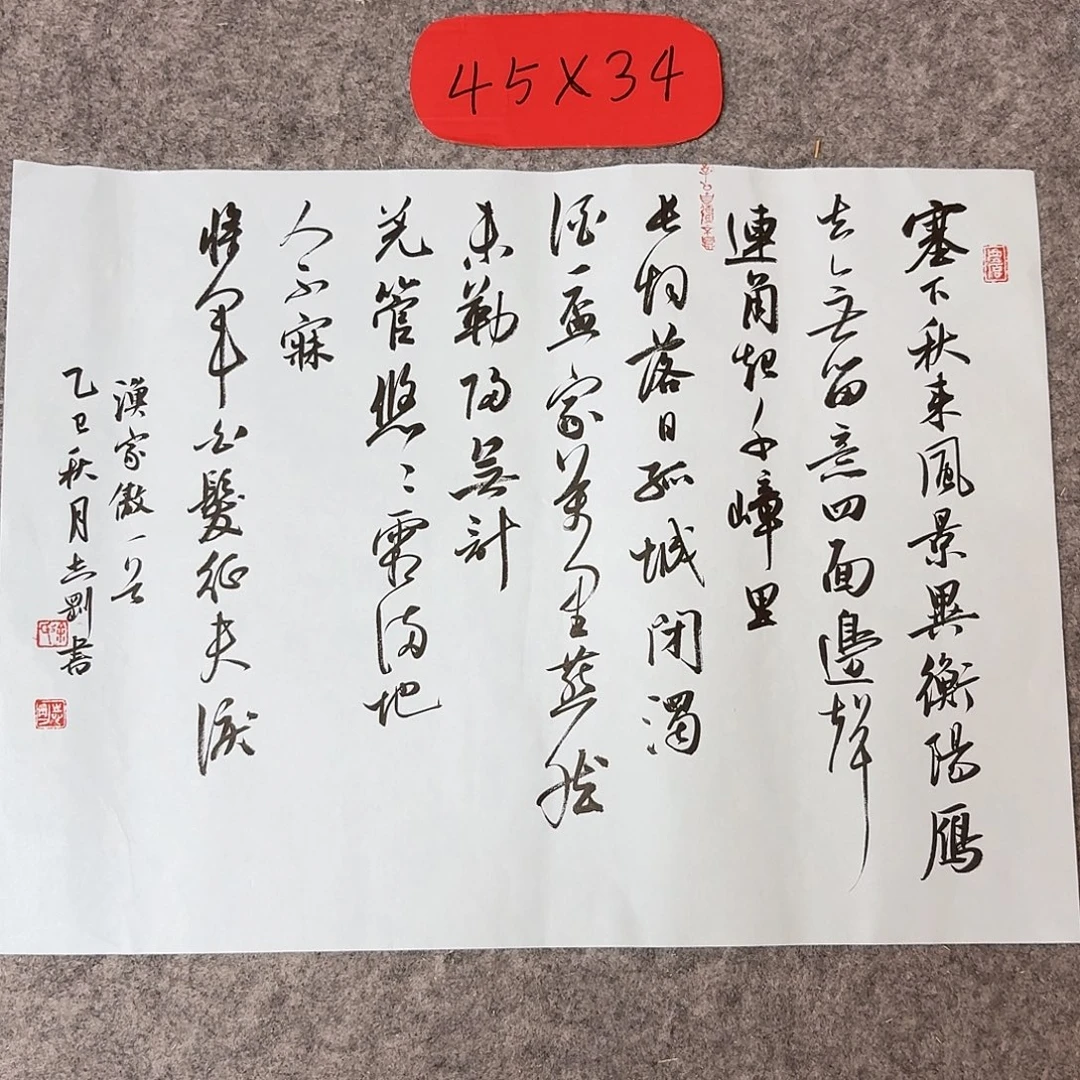 45X34
塞下秋来風景異衡陽鴈
去々无留意四面邊聲
連角起千嶂里
长烟落日孤城闭濁
酒一盃家萬里燕然
未勒歸無計
羌管悠々霜满地
人不寐
将軍白髮征夫淚
漁家傲一首
乙巳秋月志剛書